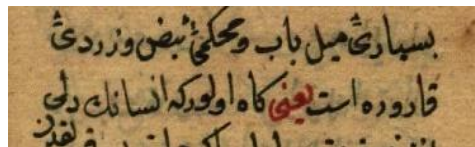 بسیارئ میل بآب و محکمئ نبض و زردئ
قاروره است یعنی کاه اولور که انسانك دلی